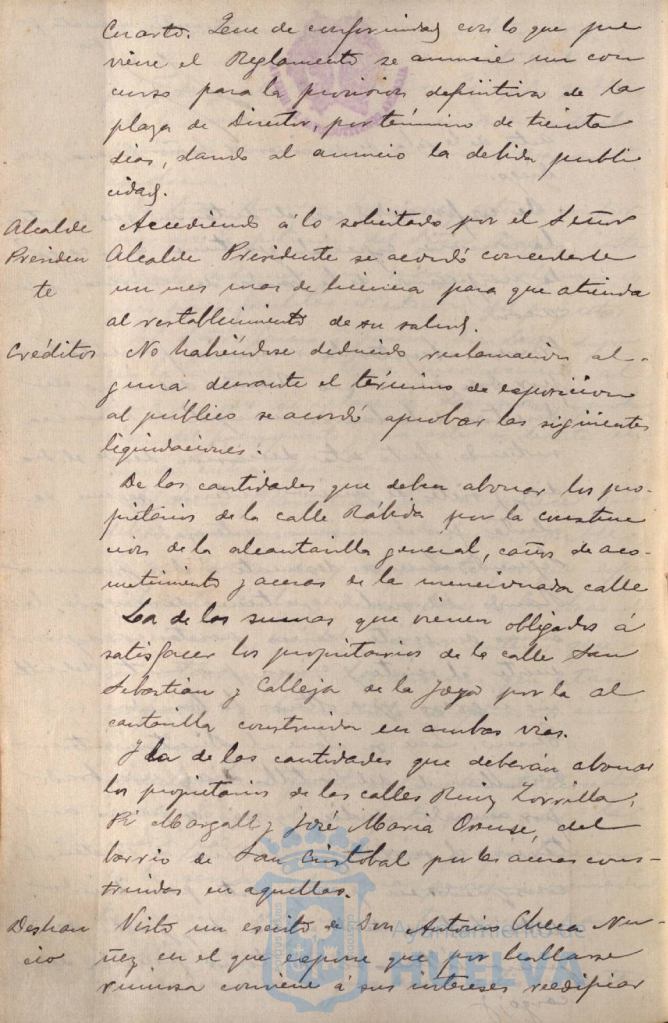 Cuarto. Que de conformidad con lo que pre
viene el Reglamento se anuncie un con
curso para la provision definitiva de la
plaza de Director, por término de treinta
dias, dando al anuncio la debida publi
cidad.
Alcalde Presiden te
Accediendo á lo solicitado por el Señor
Alcalde Presidente se acordó concederle
un mes mas de licencia para que atienda
al restablecimiento de su salud.
Créditos
No habiéndose deducido reclamacion al-
guna durante el término de esposicion
al público se acordó aprobar las siguientes
liquidaciones:
De las cantidades que deben abonar los pro-
pietarios de la calle Rábida por la construc
cion de la alcantarilla general, caños de aco-
metimiento y aceras de la mencionada calle
La de las sumas que vienen obligados á
satisfacer los propietarios de la calle San
Sebastian y Calleja de la por la al
cantarilla construida en ambas vias.
Y la de las cantidades que deberán abonar
los propietarios de las calles Ruiz Zorrilla,
Pi Margall y José Maria Orense, del
barrio de San Cristobal por las aceras cons-
truidas en aquellas.
Deshau cio
Visto un escrito de Don Antonio Checa Nu-
ñez en el que espone que por hallarse
ruinosa conviene á sus intereses reedificar
Ayuntamiento de
HUELVA